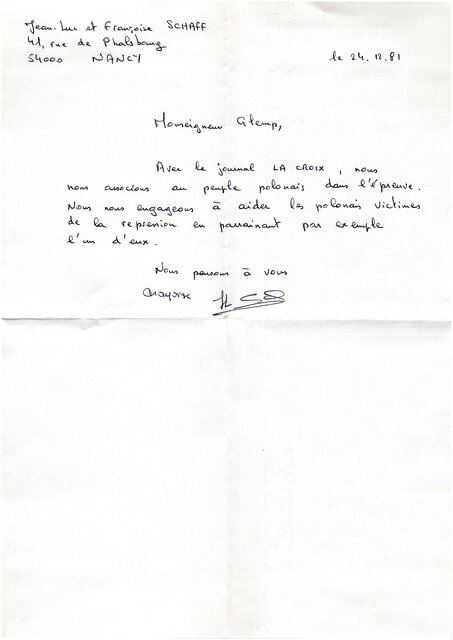 Jean-Luc et Françoise SCHAFF
41, rue de Phalsbourg
54000 NANCY
le 24.12.81
Monseigneur Glemp,
Avec le journal LA CROIX, nous
nous associons au peuple polonais dans l'épreuve.
Nous nous engageons à aider les polonais victimes
de la repression en parrainant par exemple
l'un d'eux.
Nous pensons à vous